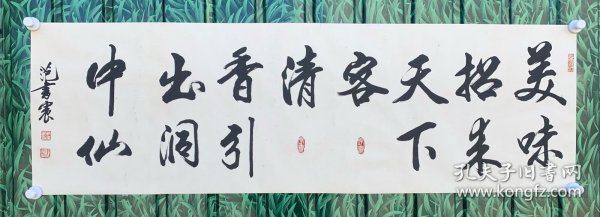 美味
招来
天下
客
清
香引
出洞
中仙
孔夫子旧书网
www.kongfz.com